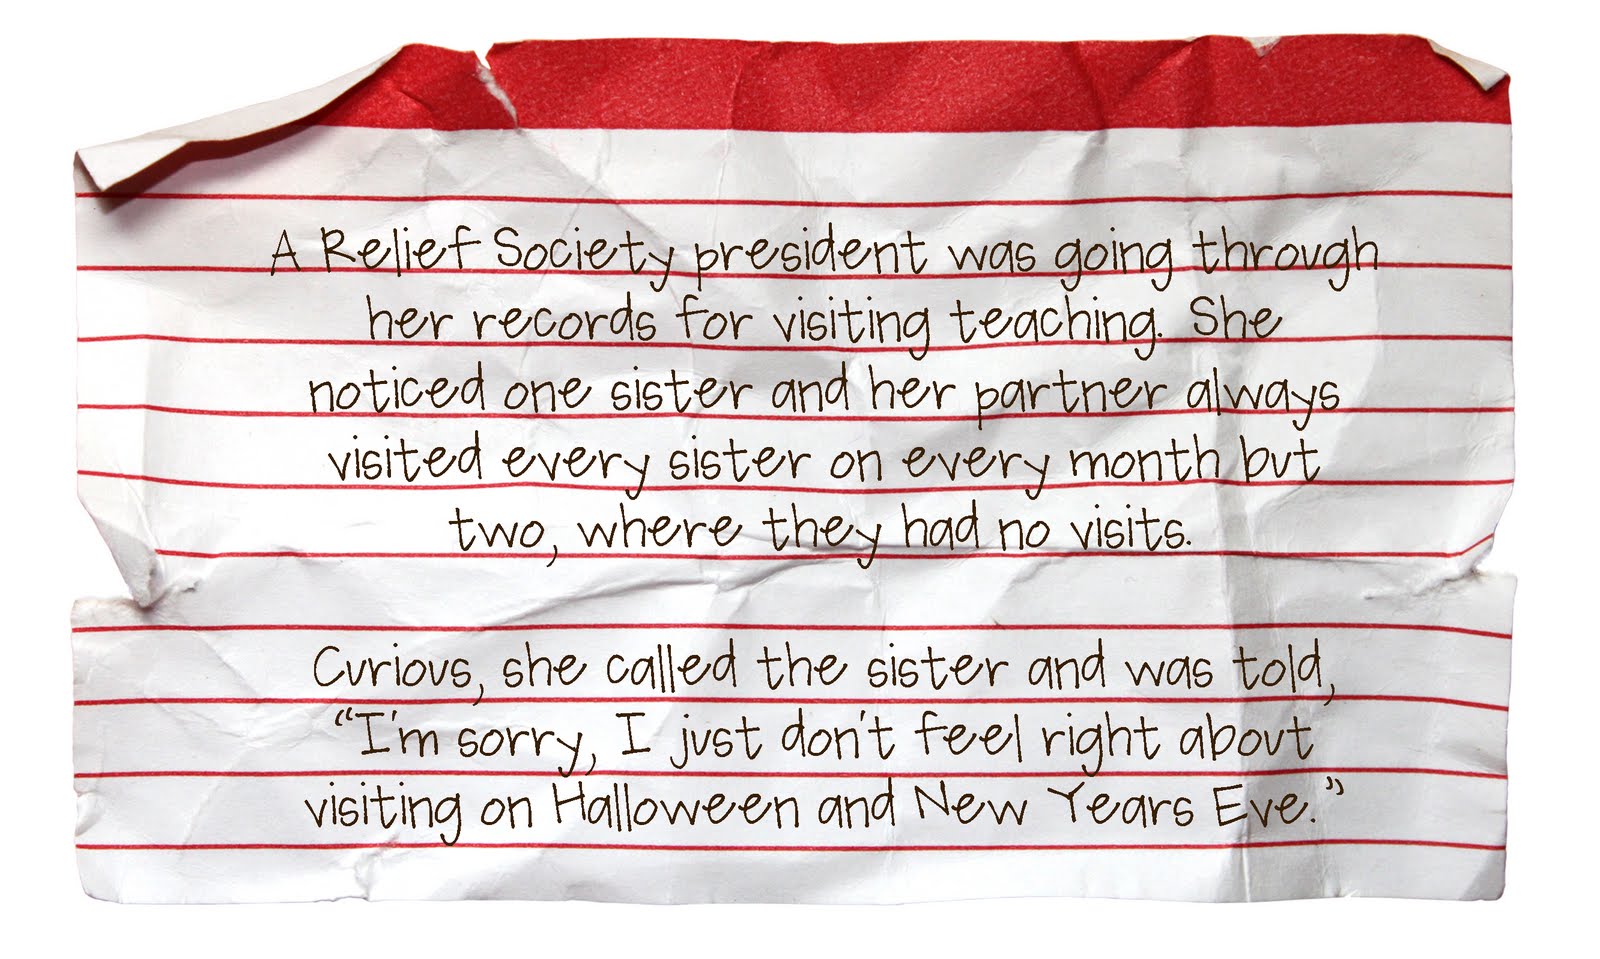 A Relief Society president was going through
her records for visiting teaching. She
noticed one sister and her partner always
visited every sister on every month but
two, where they had no visits.
Curious, she called the sister and was told,
“I'm sorry, I just don't feel right about
visiting on Halloween and New Years Eve.”